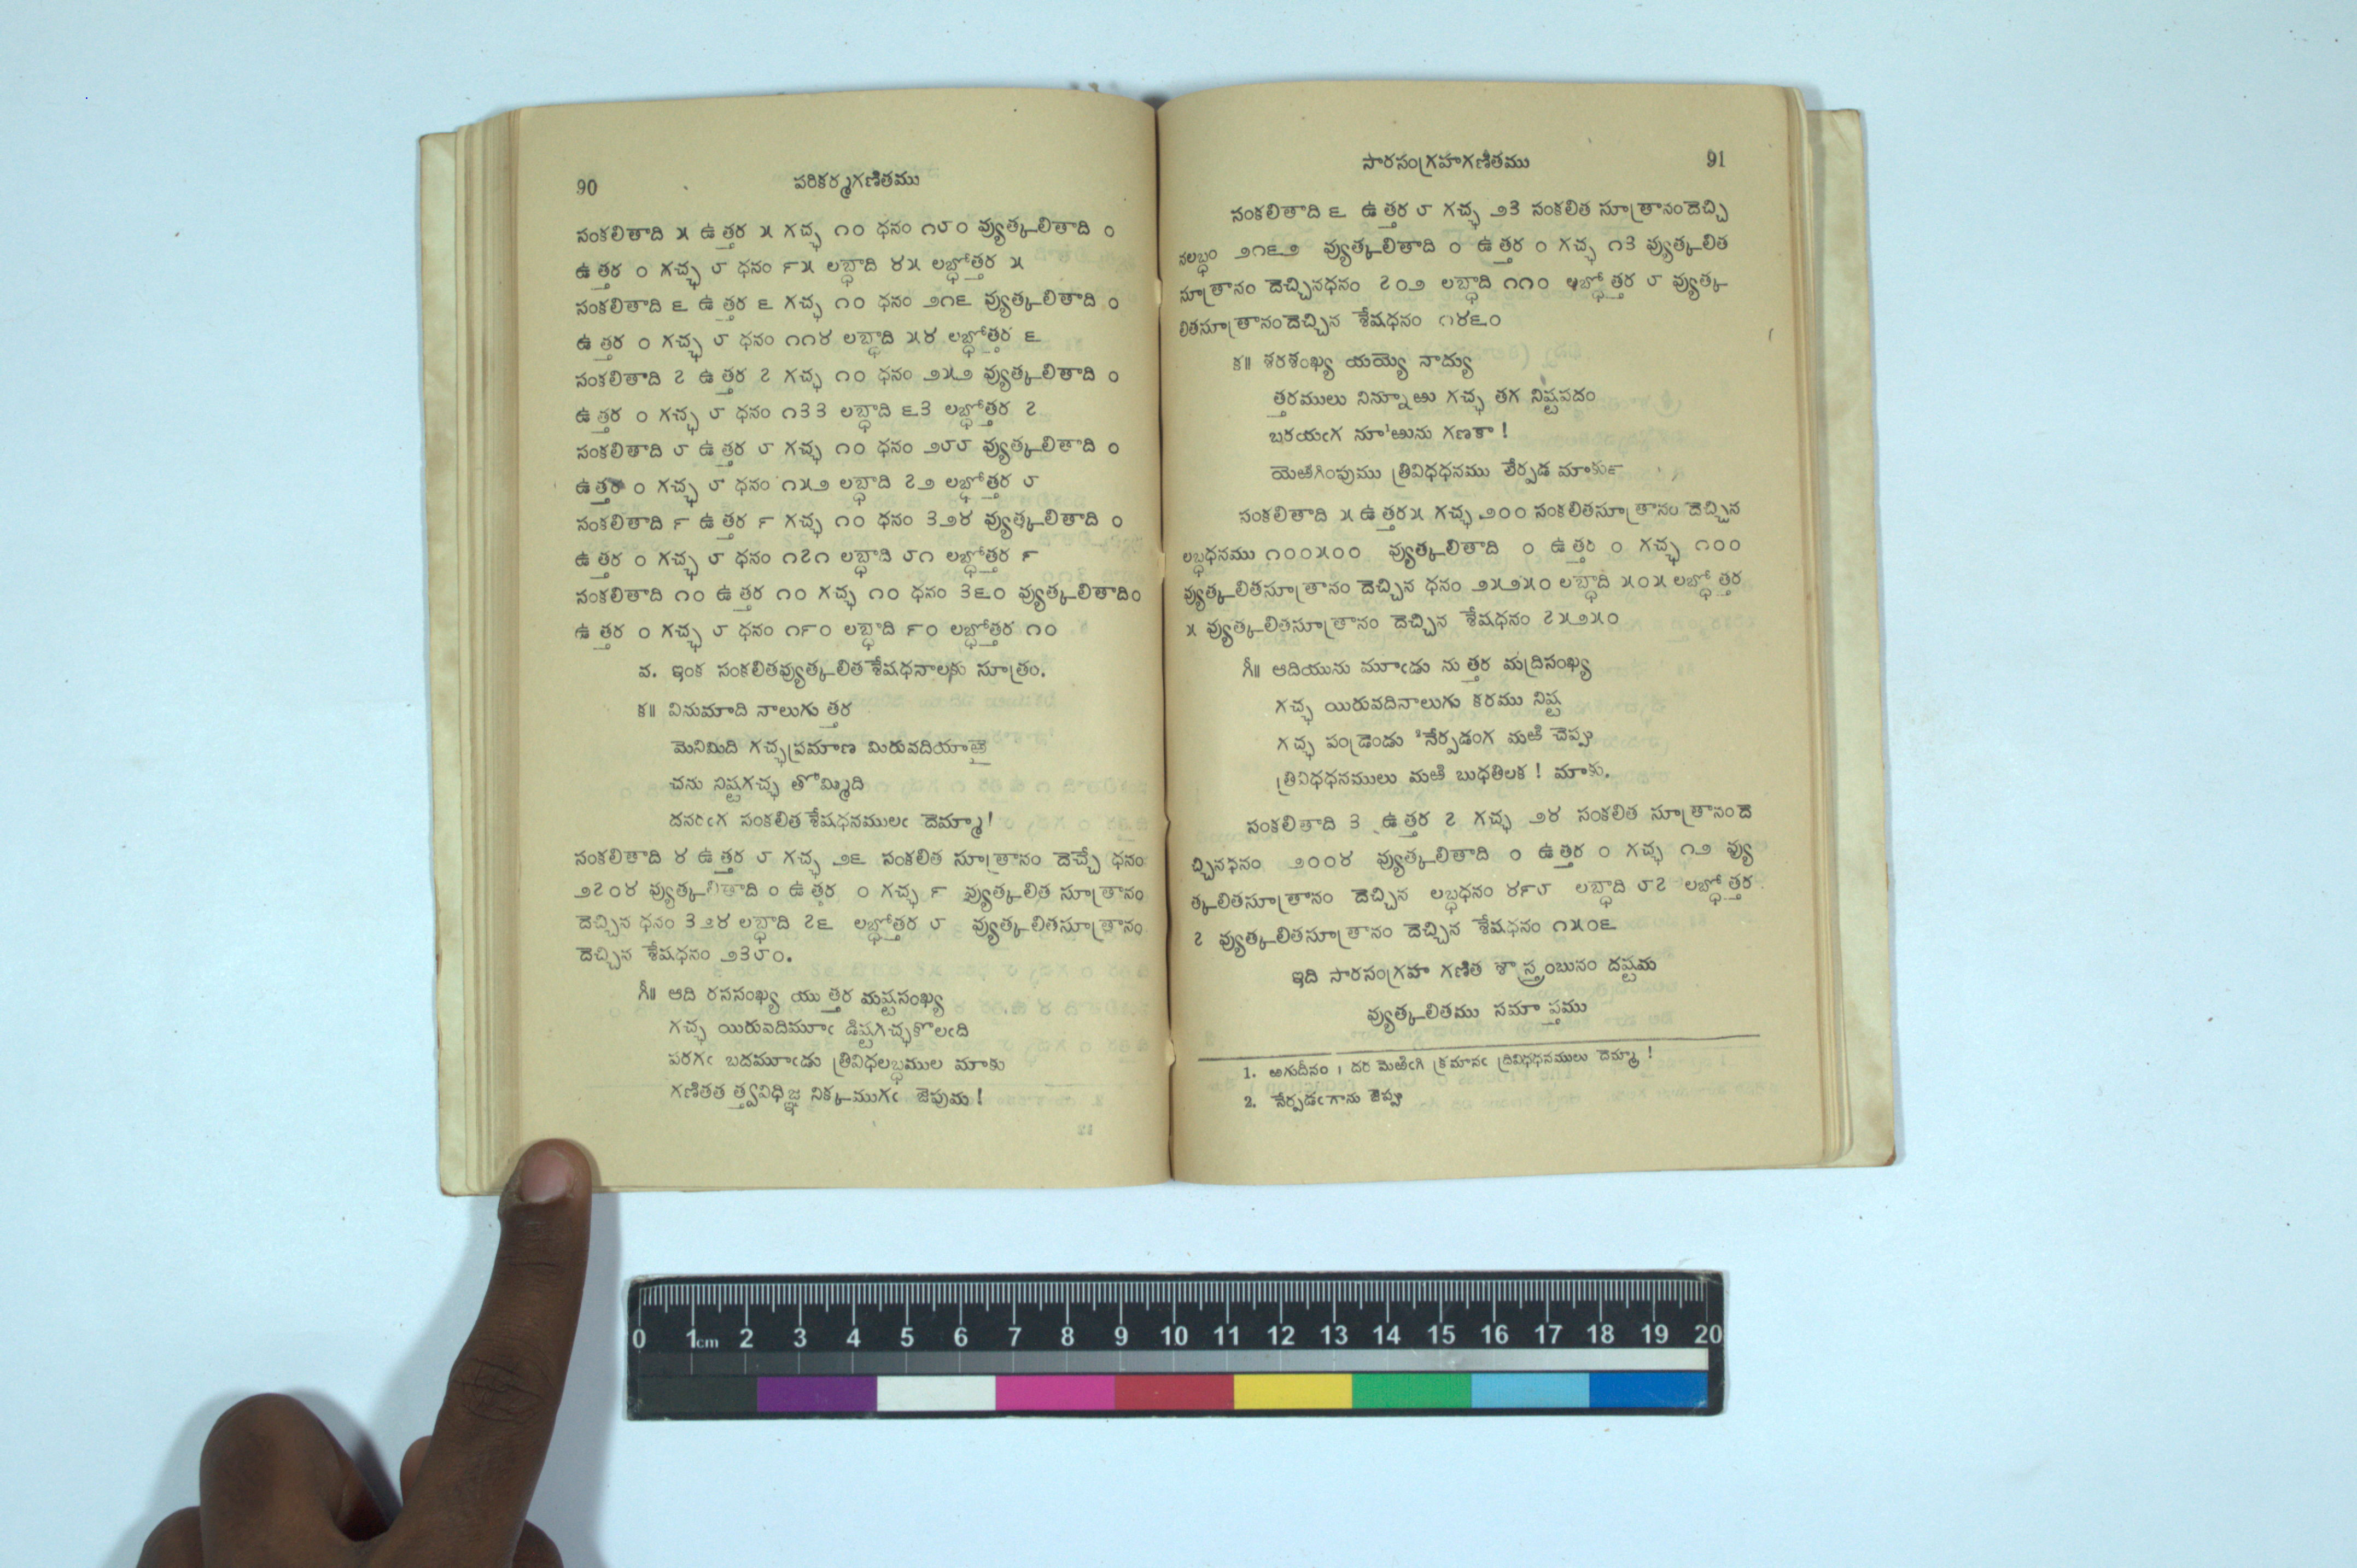 90
పరికర్మగణితము
సంకలితాది ౫ ఉత్తర ౫ గచ్ఛ ౧౦ ధనం ౧౮౦ వ్యుత్కలితాది ౦
ఉత్తర ౦ గచ్ఛ ౮ ధనం ౯౫ లబ్ధాది ౪౫ లబ్ధోత్తర ౫
సంకలితాది ౬ ఉత్తర ౬ గచ్ఛ ౧౦ ధనం ౨౧౬ వ్యుత్కలితాది ౦
ఉత్తర ౦ గచ్ఛ ౮ ధనం ౧౧౪ లబ్ధాది ౫౪ లబ్ధోత్తర ౬
సంకలితాది ౭ ఉత్తర ౭ గచ్ఛ ౧౦ ధనం ౨౫౨ వ్యుత్కలితాది ౦
ఉత్తర ౦ గచ్ఛ ౮ ధనం ౧౩౩ లబ్ధాది ౬౩ లబ్ధోత్తర ౭
సంకలితాది ౮ ఉత్తర ౮ గచ్ఛ ౧౦ ధనం ౨౮౮ వ్యుత్కలితాది ౦
ఉత్తర ౦ గచ్ఛ ౮ ధనం ౧౫౨ లబ్ధాది ౭౨ లబ్ధోత్తర ౮
సంకలితాది ౯ ఉత్తర ౯ గచ్ఛ ౧౦ ధనం ౩౨౪ వ్యుత్కలితాది ౦
ఉత్తర ౦ గచ్ఛ ౮ ధనం ౧౭౧ లబ్ధాది ౮౧ లబ్ధోత్తర ౯
సంకలితాది ౧౦ ఉత్తర ౧౦ గచ్ఛ ౧౦ ధనం ౩౬౦ వ్యుత్కలితాది౦
ఉత్తర ౦ గచ్ఛ ౮ ధనం ౧౯౦ లబ్ధాది ౯౦ లబ్ధోత్తర ౧౦
వ. ఇంక సంకలితవ్యుత్కలిత శేషధనాలకు సూత్రం.
క॥ వినుమాది నాలుగు త్తర
మెనిమిది గచ్ఛప్రమాణ మిరువదియాఱై
చను నిష్టగచ్ఛ తొమ్మిది
దనరఁగ సంకలిత శేషధనములఁ దెమ్మా!
సంకలితాది ౪ ఉత్తర ౮ గచ్ఛ ౨౬ సంకలిత సూత్రానం దెచ్చే ధనం
౨౭౦౪ వ్యుత్కలితాది ౦ ఉత్తర ౦ గచ్ఛ ౯ వ్యుత్కలిత సూత్రానం
దెచ్చిన ధనం ౩౨౪ లబ్ధాది ౭౬ లబ్ధోత్తర ౮ వ్యుత్కలితసూత్రానం
దెచ్చిన శేషధనం ౨౩౮౦.
గీ॥ ఆది రససంఖ్య యు త్తర మష్టసంఖ్య
గచ్ఛ యిరువదిమూఁ డిష్టగచ్ఛకొలఁది
పరగఁ బదమూఁడు త్రివిధలబ్ధముల మాకు
గణితత త్త్వవిధిజ్ఞ నిక్కముగఁ జెపుమ!
సారసంగ్రహగణితము
91
సంకలితాది ౬ ఉత్తర ౮ గచ్ఛ ౨౩ సంకలిత సూత్రానందెచ్చి
నలబ్ధం ౨౧౬౨ వ్యుత్కలితాది ౦ ఉత్తర ౦ గచ్ఛ ౧౩ వ్యుత్కలిత
సూత్రానం దెచ్చినధనం ౭౦౨ లబ్ధాది ౧౧౦ లబ్ధోత్తర ౮ వ్యుత్క
లితసూత్రానందెచ్చిన శేషధనం ౧౪౬౦
క॥ శరశంఖ్య యయ్యె నాద్యు
త్తరములు నిన్నూఱు గచ్ఛ తగ నిష్టపదం
బరయఁగ నూ¹ఱును గణకా!
యెఱిగింపుము త్రివిధధనము లేర్పడ మాకు౯
సంకలితాది ౫ ఉత్తర౫ గచ్ఛ ౨౦౦ సంకలితసూత్రానం దెచ్చిన
లబ్ధధనము ౧౦౦౫౦౦ వ్యుత్కలితాది ౦ ఉత్తర ౦ గచ్ఛ ౧౦౦
వ్యుత్కలితసూత్రానం దెచ్చిన ధనం ౨౫౨౫౦ లబ్ధాది ౫౦౫ లబ్ధోత్తర
౫ వ్యుత్కలితసూత్రానం దెచ్చిన శేషధనం ౭౫౨౫౦
గీ॥ ఆదియును మూఁడు ను త్తర మద్రిసంఖ్య
గచ్ఛ యిరువదినాలుగు కరము నిష్ట
గచ్ఛ పండ్రెండు ²నేర్పడంగ మఱి చెప్పు
త్రివిధధనములు మఱి బుధతిలక! మాకు.
సంకలితాది ౩ ఉత్తర ౭ గచ్ఛ ౨౪ సంకలిత సూత్రానందె
చ్చినధనం ౨౦౦౪ వ్యుత్కలితాది ౦ ఉత్తర ౦ గచ్ఛ ౧౨ వ్యు
త్కలితసూత్రానం దెచ్చిన లబ్ధధనం ౪౯౮ లబ్ధాది ౮౭ లబ్ధోత్తర
౭ వ్యుత్కలితసూత్రానం దెచ్చిన శేషధనం ౧౫౦౬
ఇది సారసంగ్రహ గణిత శాస్త్రంబునం దష్టమ
వ్యుత్కలితము సమాప్తము
1. ఱగుదీనం । దర మెఱిఁగి క్రమానఁ ద్రివిధధనములు దెమ్మా!
2. నేర్పడఁగాను జెప్పు
0 1cm 2 3 4 5 6 7 8 9 10 11 12 13 14 15 16 17 18 19 20